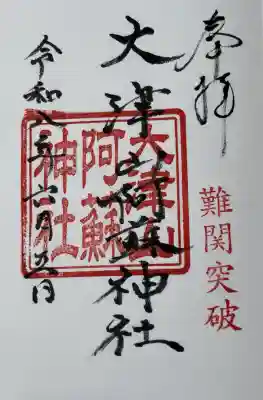 奉拝
難関突破
大津山阿蘇神社
大津山
阿蘇
神社
令和八年六月五日